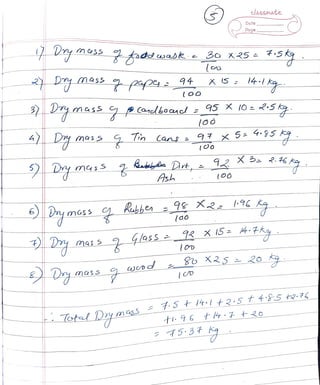 5
classmate
Date
Page
1) Dry mass of food wask = 30/100 × 25 = 7.5 kg.
2) Dry mass of paper = 94/100 × 15 = 14.1 kg.
3) Dry mass of cardboard = 95/100 × 10 = 2.5 kg.
4) Dry mass of Tin cans = 97/100 × 5 = 4.85 kg
5) Dry mass of Dirt, Ash = 92/100 × 3 = 2.76 kg
6) Dry mass of Rubber = 98/100 × 2 = 1.96 kg
7) Dry mass of Glass = 98/100 × 15 = 14.7 kg
8) Dry mass of wood = 80/100 × 25 = 20 kg
∴ Total Dry mass = 7.5 + 14.1 + 2.5 + 4.85 + 2.76
+1.96 + 14.7 + 20
= 75.37 kg.